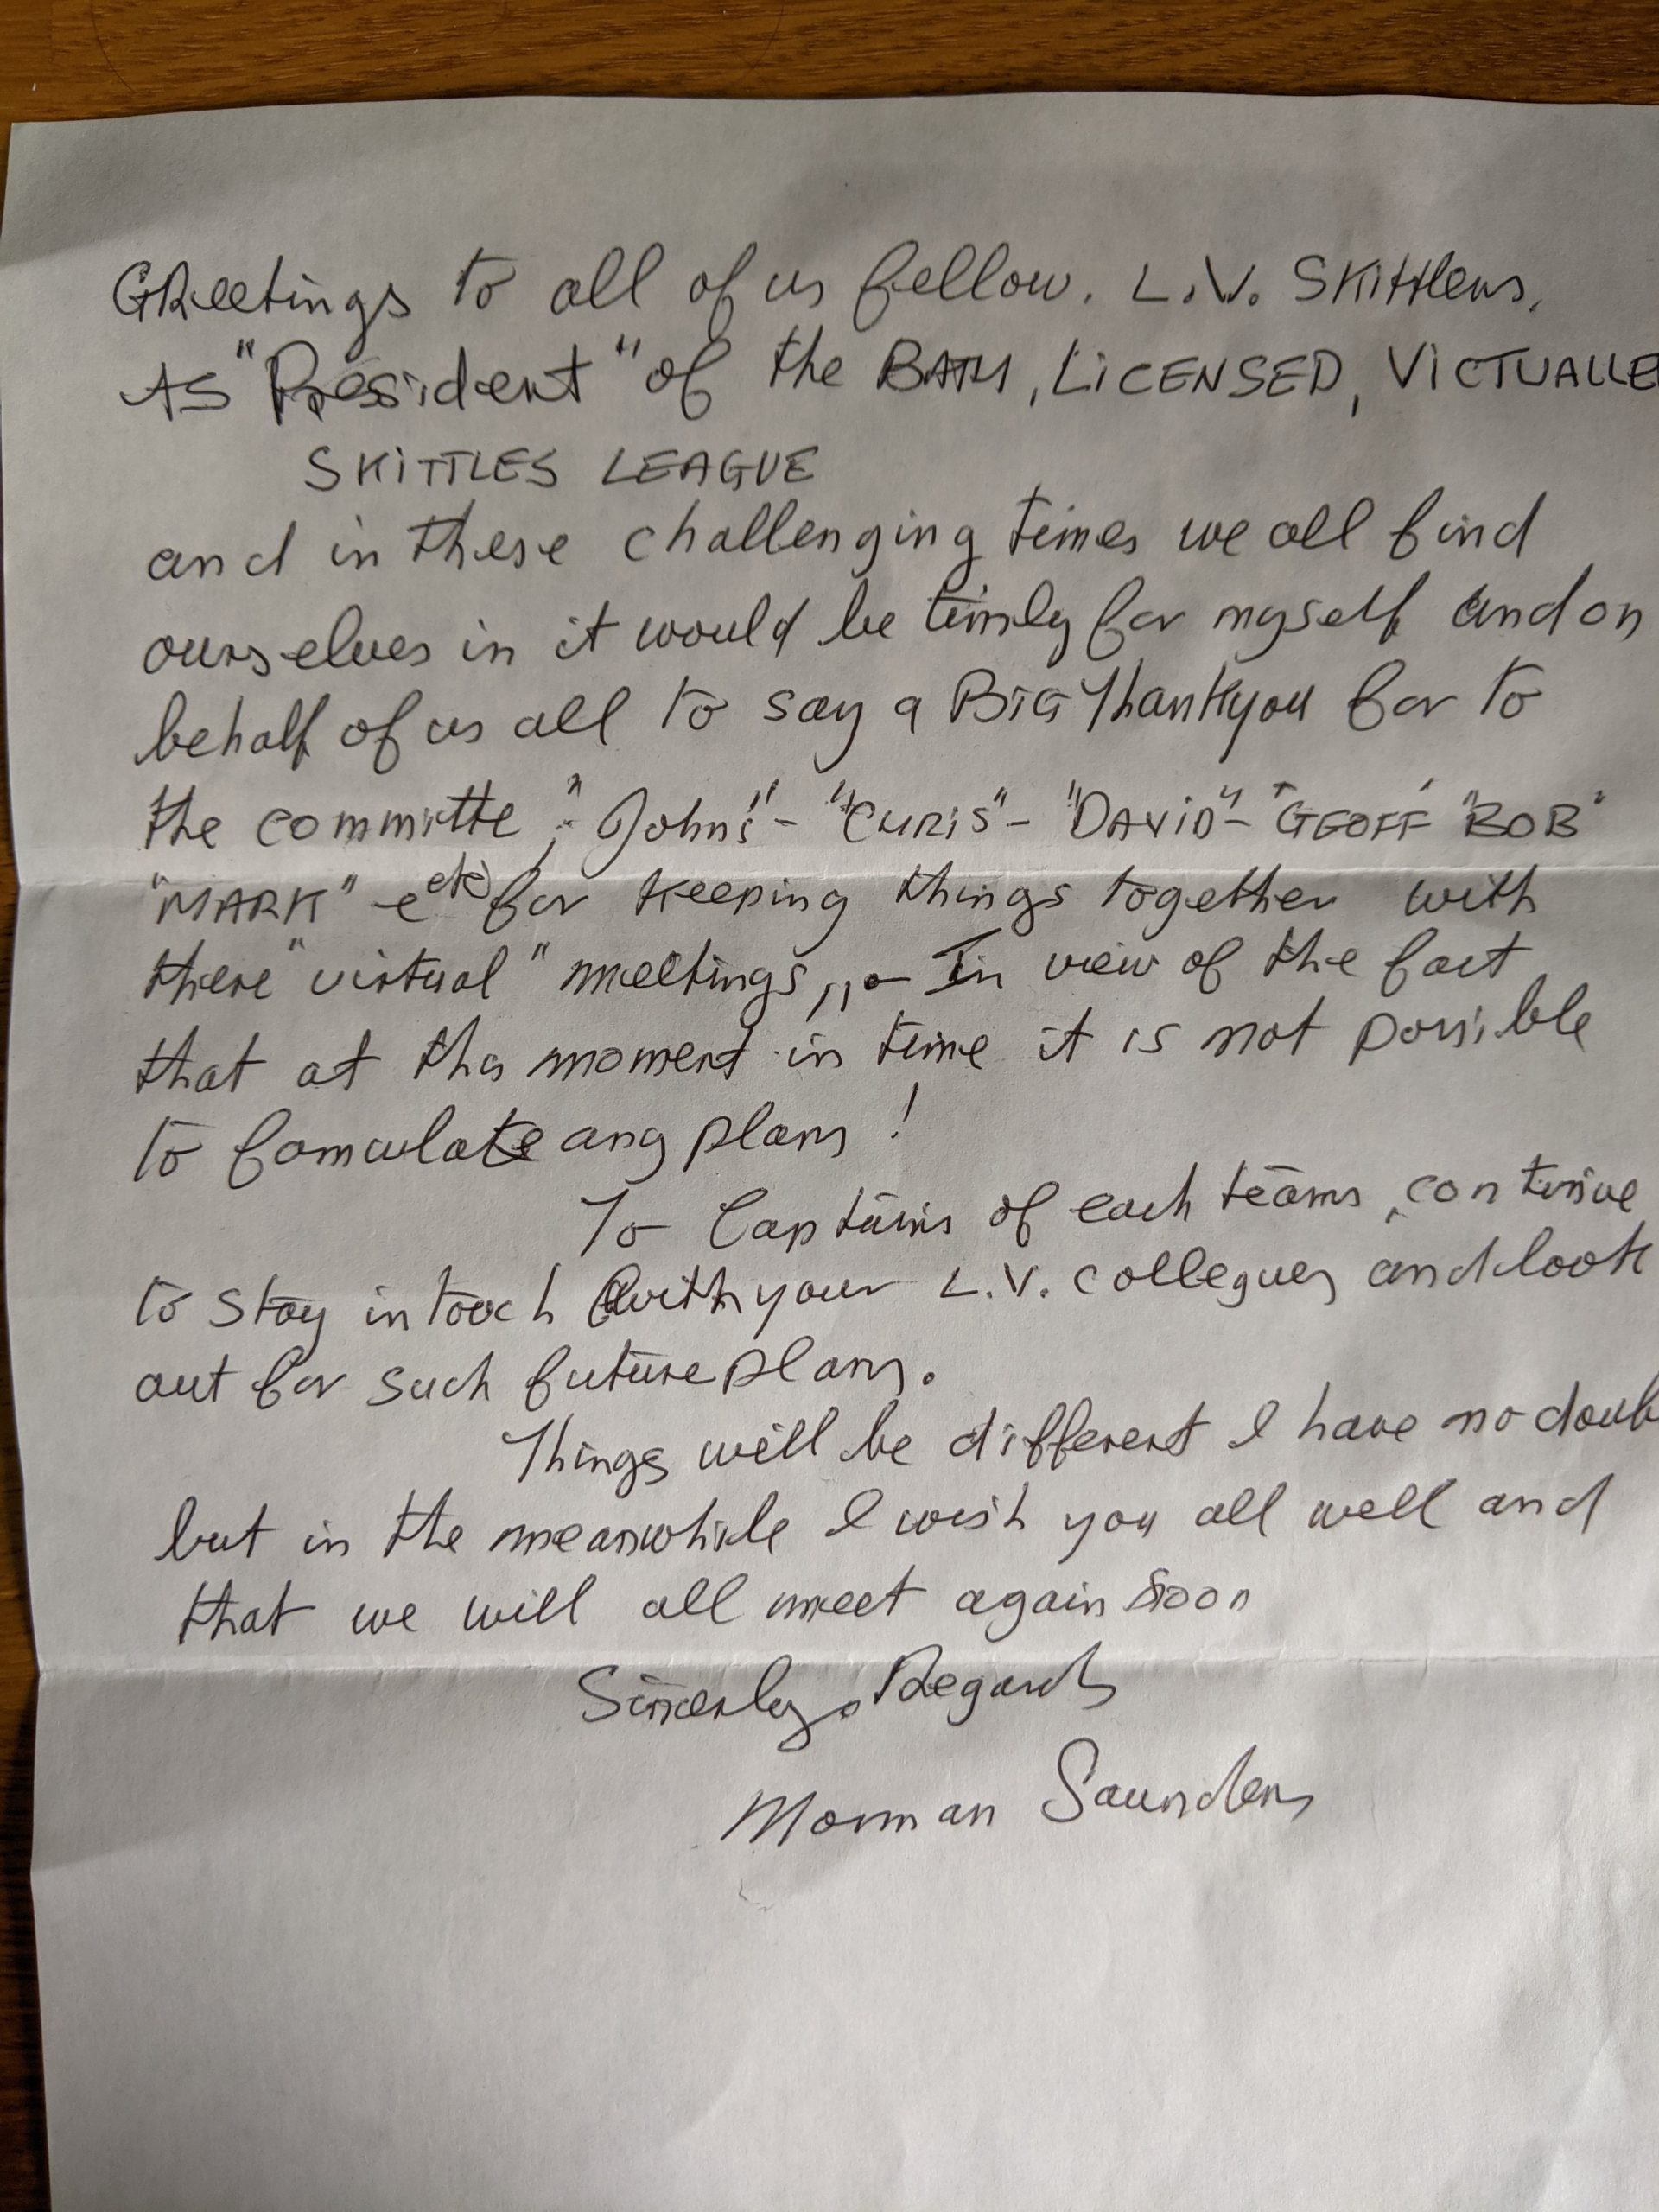 Greetings to all of us fellow. L.V. Skittlers.
As "President" of the BATH, LICENSED, VICTUALLE
SKITTLES LEAGUE
and in these challenging times we all find
ourselves in it would be timly for myself and on
behalf of us all to say a BIG Thankyou for to
the committe; "John's" - "CHRIS" - "DAVID" - "GEOFF" "BOB"
"MARK" - etc) for keeping things together with
there "virtual" meetings,,.- In view of the fact
that at ths moment in time it is not possible
to fomculate any plans!
To Captains of each teams, continue
to stay in touch with your L.V. collegues and look
out for such future plans.
Things will be different I have no doub
but in the meanwhile I wish you all well and
that we will all meet again soon
Sincerly. Regards
Norman Saunders